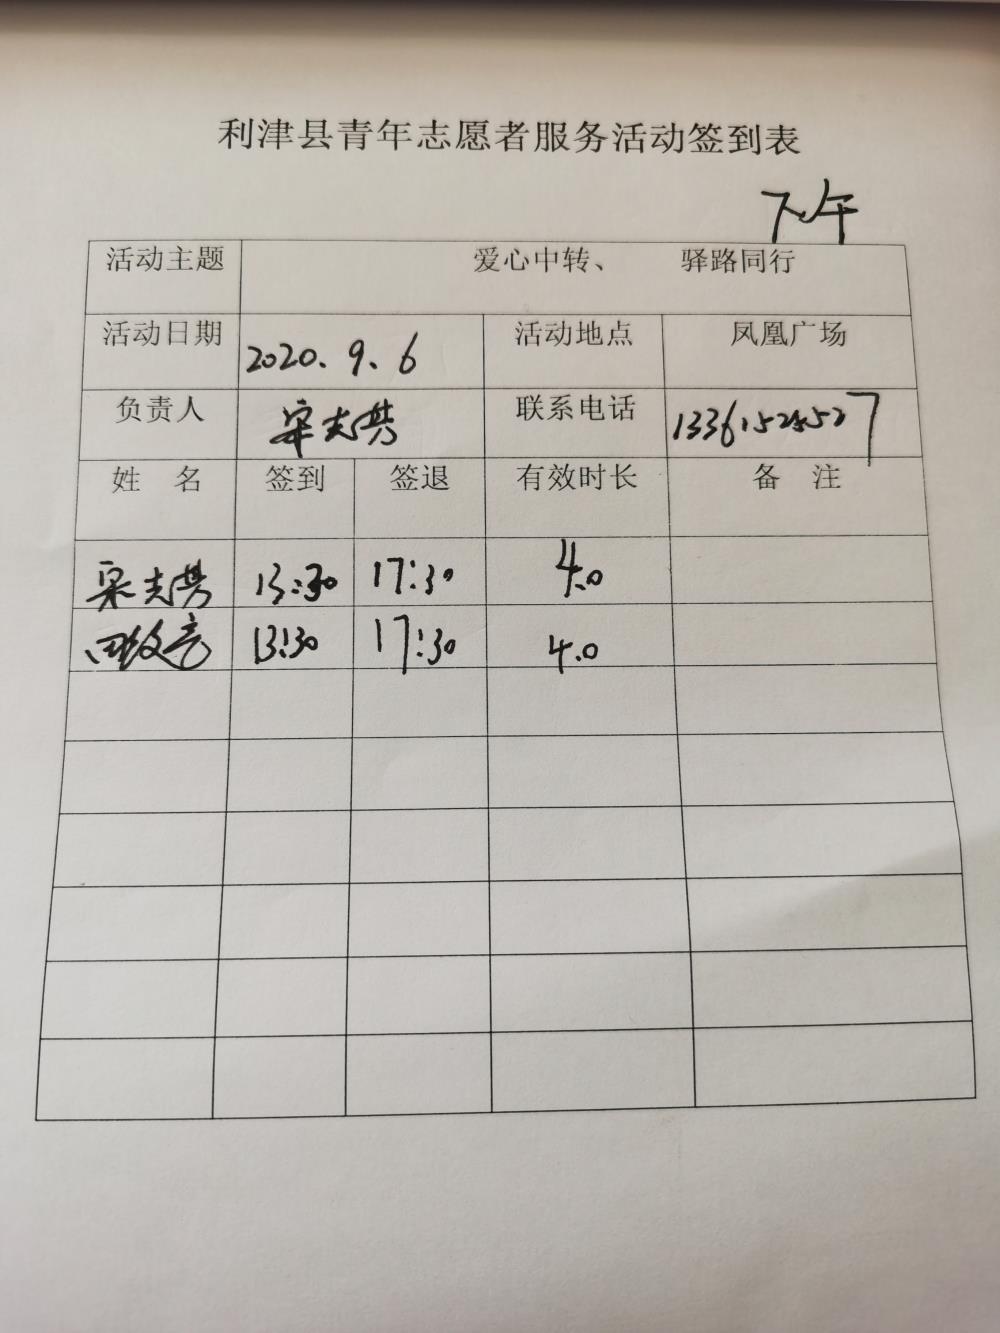 利津县青年志愿者服务活动签到表
下午
活动主题 爱心中转、 驿路同行
活动日期 2020.9.6 活动地点 凤凰广场
负责人 联系电话
姓 名 签到 签退 有效时长 备 注
13:30 17:30 4.0
13:30 17:30 4.0